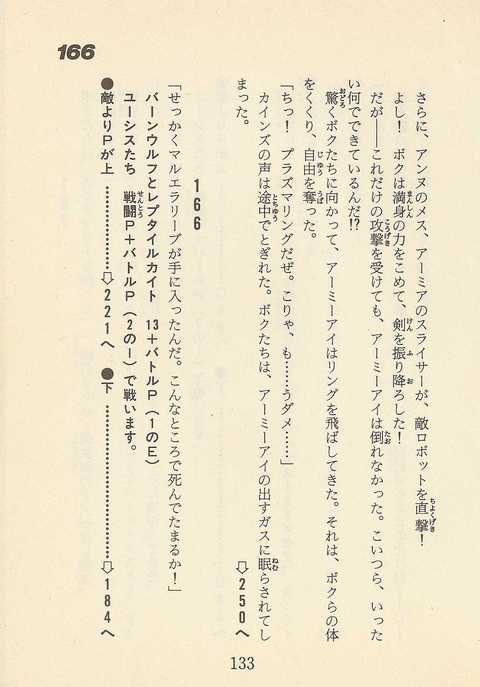 166
さらに、アンヌのメス、アーミアのスライサーが、敵ロボットを直撃!
よし! ボクは満身の力をこめて、剣を振り降ろした!
だが――これだけの攻撃を受けても、アーミーアイは倒れなかった。こいつら、いった
い何でできているんだ!?
驚くボクたちに向かって、アーミーアイはリングを飛ばしてきた。それは、ボクらの体
をくくり、自由を奪った。
「ちっ! プラズマリングだぜ。こりゃ、も……うダメ……」
カインズの声は途中でとぎれた。ボクたちは、アーミーアイの出すガスに眠らされてし
まった。
⇨250へ
166
「せっかくマルエラリーブが手に入ったんだ。こんなところで死んでたまるか!」
バーンウルフとレプタイルカイト 13+バトルP(1のE)
ユーシスたち 戦闘P+バトルP(2のI)で戦います。
●敵よりPが上…………⇨221へ ●下…………⇨184へ
133